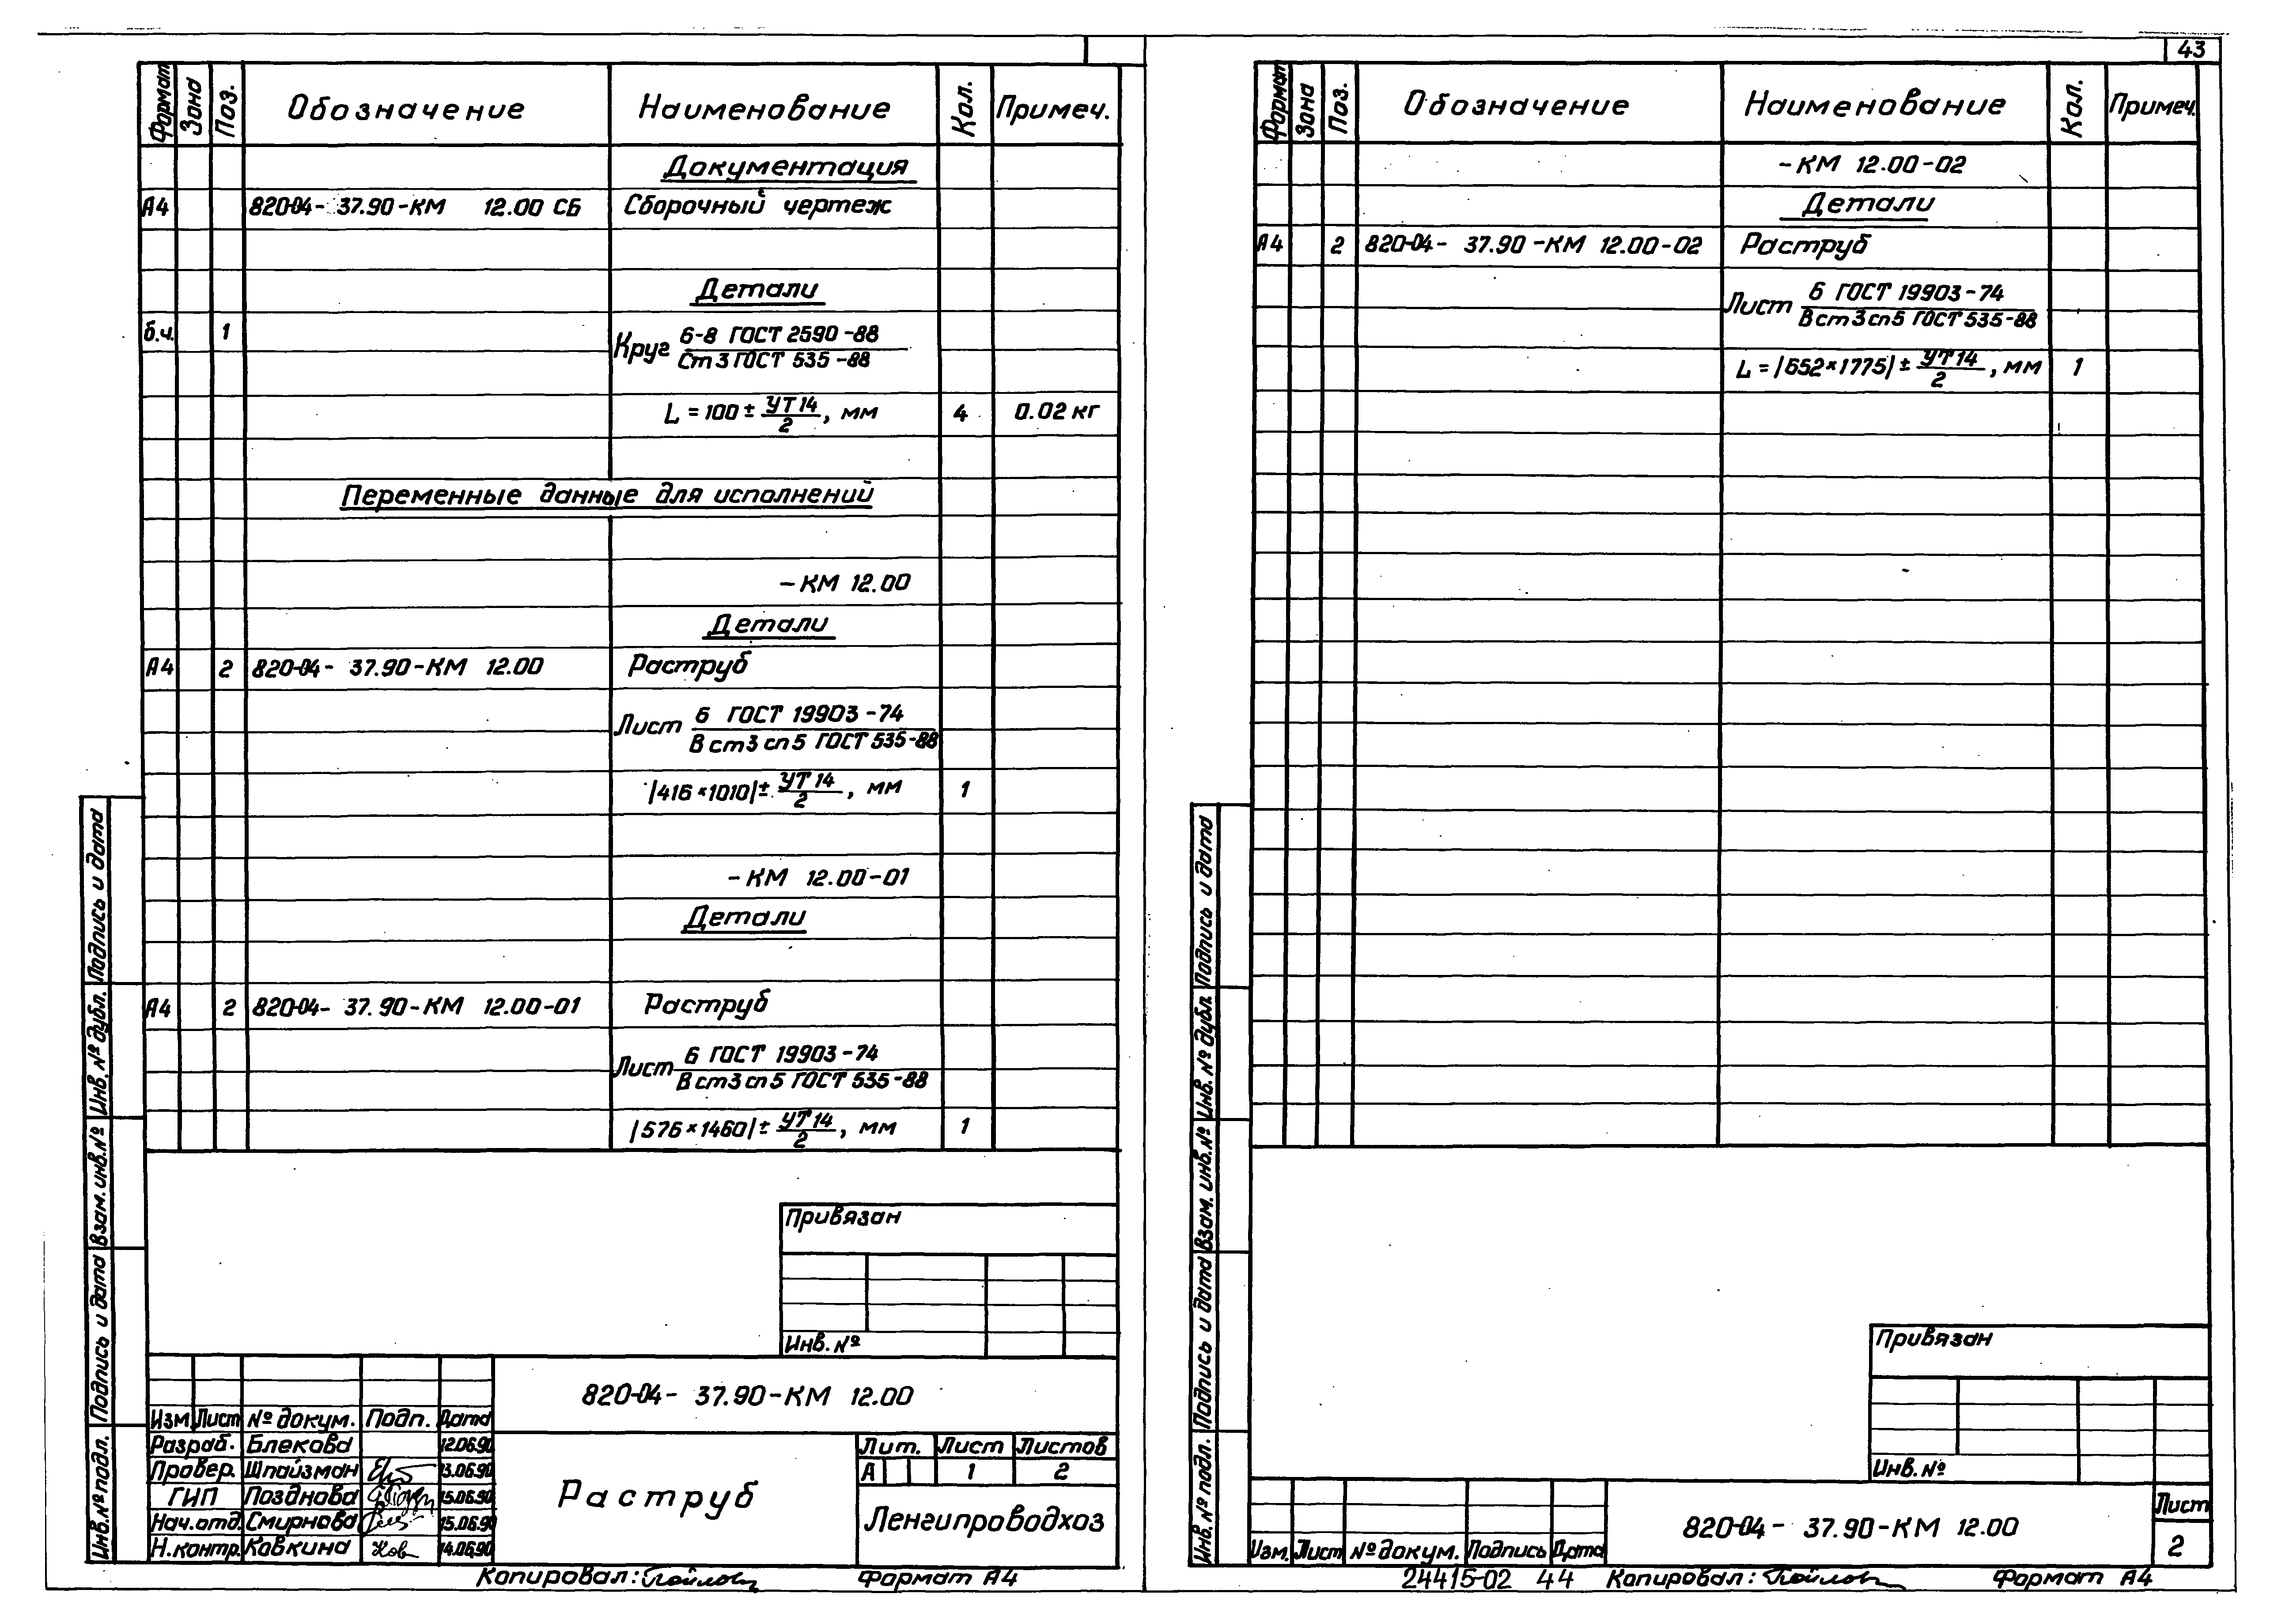 Формат Зона Поз. Обозначение Наименование Кол. Примеч.
Документация
А4 820-04- 37.90-КМ 12.00 СБ Сборочный чертеж
Детали
б.ч. 1 Круг 6-8 ГОСТ 2590-88
Ст 3 ГОСТ 535-88
L = 100 ± УТ14/2, мм 4 0.02 кг
Переменные данные для исполнений
- КМ 12.00
Детали
А4 2 820-04- 37.90-КМ 12.00 Раструб
Лист 6 ГОСТ 19903-74
В ст3 сп5 ГОСТ 535-88
|416×1010| ± УТ14/2, мм 1
- КМ 12.00-01
Детали
А4 2 820-04- 37.90-КМ 12.00-01 Раструб
Лист 6 ГОСТ 19903-74
В ст3 сп5 ГОСТ 535-88
|576×1460| ± УТ14/2, мм 1
Привязан
Инв. №
820-04- 37.90-КМ 12.00
Изм Лист № докум. Подп. Дата
Разраб. Блекова 12.06.90
Провер. Шпайзман 13.06.90
ГИП Позднова 15.06.90
Нач.отд. Смирнова 15.06.90
Н.контр. Кавкина 14.06.90
Раструб
Лит. Лист Листов
А 1 2
Ленгипроводхоз
Копировал: Формат А4
Подпись и дата
Инв. № дубл.
Взам. инв. №
Подпись и дата
Инв. № подл.
43
Формат Зона Поз. Обозначение Наименование Кол. Примеч.
- КМ 12.00-02
Детали
А4 2 820-04- 37.90-КМ 12.00-02 Раструб
Лист 6 ГОСТ 19903-74
В ст3 сп5 ГОСТ 535-88
L = |652×1775| ± УТ14/2, мм 1
Привязан
Инв. №
820-04- 37.90-КМ 12.00
Лист
2
Изм. Лист № докум. Подпись Дата
24415-02 44 Копировал: Формат А4
Подпись и дата
Инв. № дубл.
Взам. инв. №
Подпись и дата
Инв. № подл.